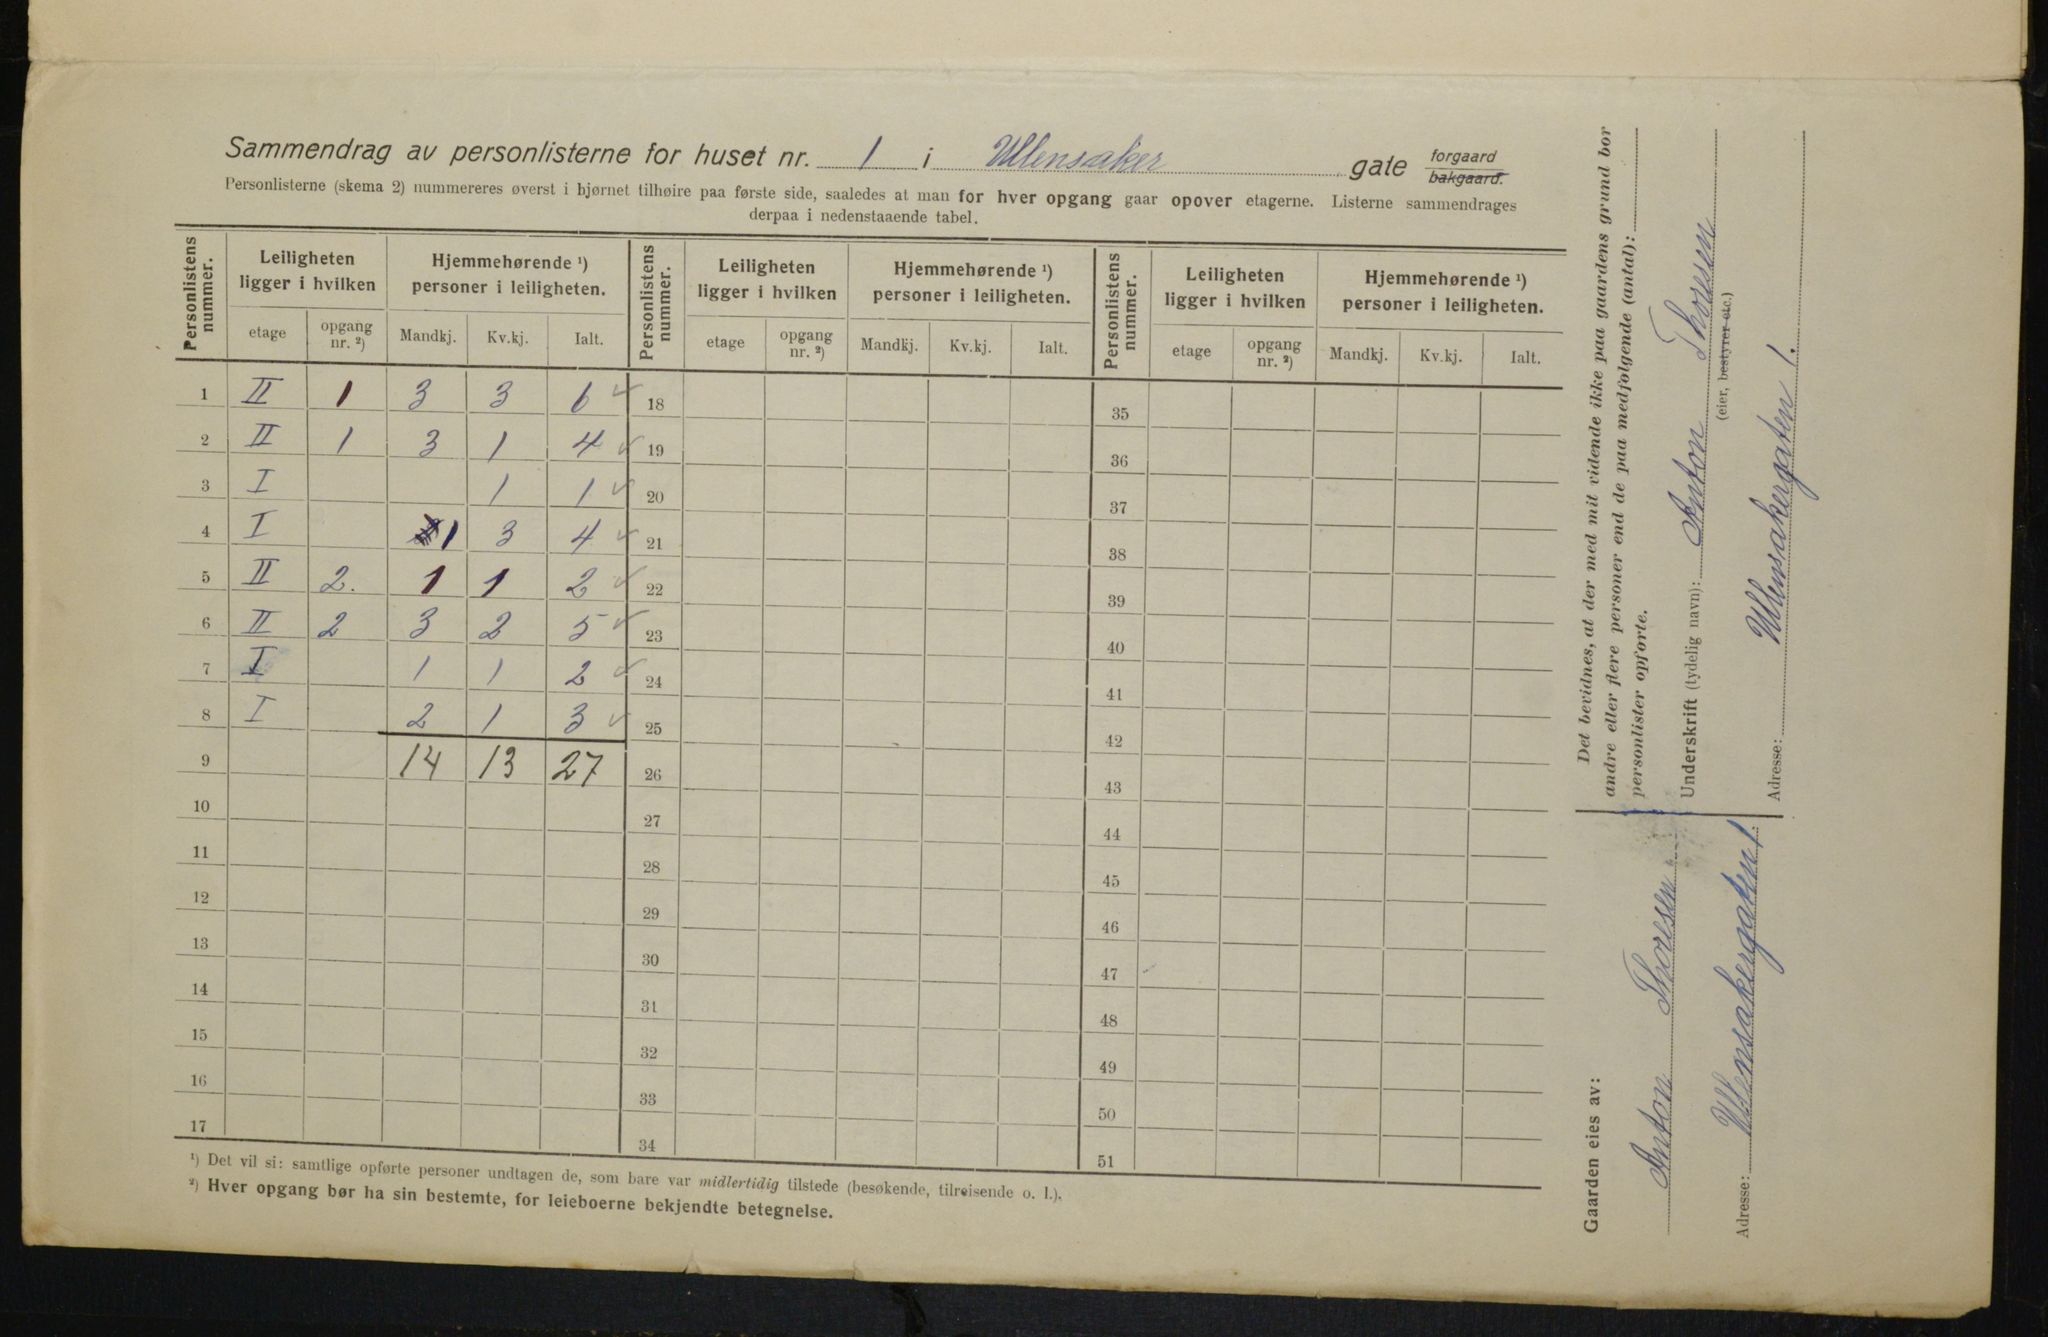 Sammendrag av personlisterne for huset nr. 1 i Ullensaker gate forgaard bakgaard.
Personlisterne (skema 2) nummereres øverst i hjørnet tilhøire paa første side, saaledes at man for hver opgang gaar opover etagerne. Listerne sammendrages
derpaa i nedenstaaende tabel.
Personlistens nummer. Leiligheten ligger i hvilken Hjemmehørende ¹) personer i leiligheten. Personlistens nummer. Leiligheten ligger i hvilken Hjemmehørende ¹) personer i leiligheten. Personlistens nummer. Leiligheten ligger i hvilken Hjemmehørende ¹) personer i leiligheten.
etage opgang nr. ²) Mandkj. Kv.kj. Ialt. etage opgang nr. ²) Mandkj. Kv.kj. Ialt. etage opgang nr. ²) Mandkj. Kv.kj. Ialt.
1 II 1 3 3 6 ✓ 18 35
2 II 1 3 1 4 ✓ 19 36
3 I 1 1 ✓ 20 37
4 I 1 3 4 ✓ 21 38
5 II 2. 1 1 2 ✓ 22 39
6 II 2 3 2 5 ✓ 23 40
7 I 1 1 2 ✓ 24 41
8 I 2 1 3 ✓ 25 42
9 14 13 27 26 43
10 27 44
11 28 45
12 29 46
13 30 47
14 31 48
15 32 49
16 33 50
17 34 51
¹) Det vil si: samtlige opførte personer undtagen de, som bare var midlertidig tilstede (besøkende, tilreisende o. l.).
²) Hver opgang bør ha sin bestemte, for leieboerne bekjendte betegnelse.
Det bevidnes, at der med mit vidende ikke paa gaardens grund bor
andre eller flere personer end de paa medfølgende (antal):
personlister opførte.
Underskrift (tydelig navn): Anton Thoresen
(eier, bestyrer etc.)
Adresse: Ullensakergaten 1.
Gaarden eies av:
Anton Thoresen
Adresse: Ullensakergaten 1